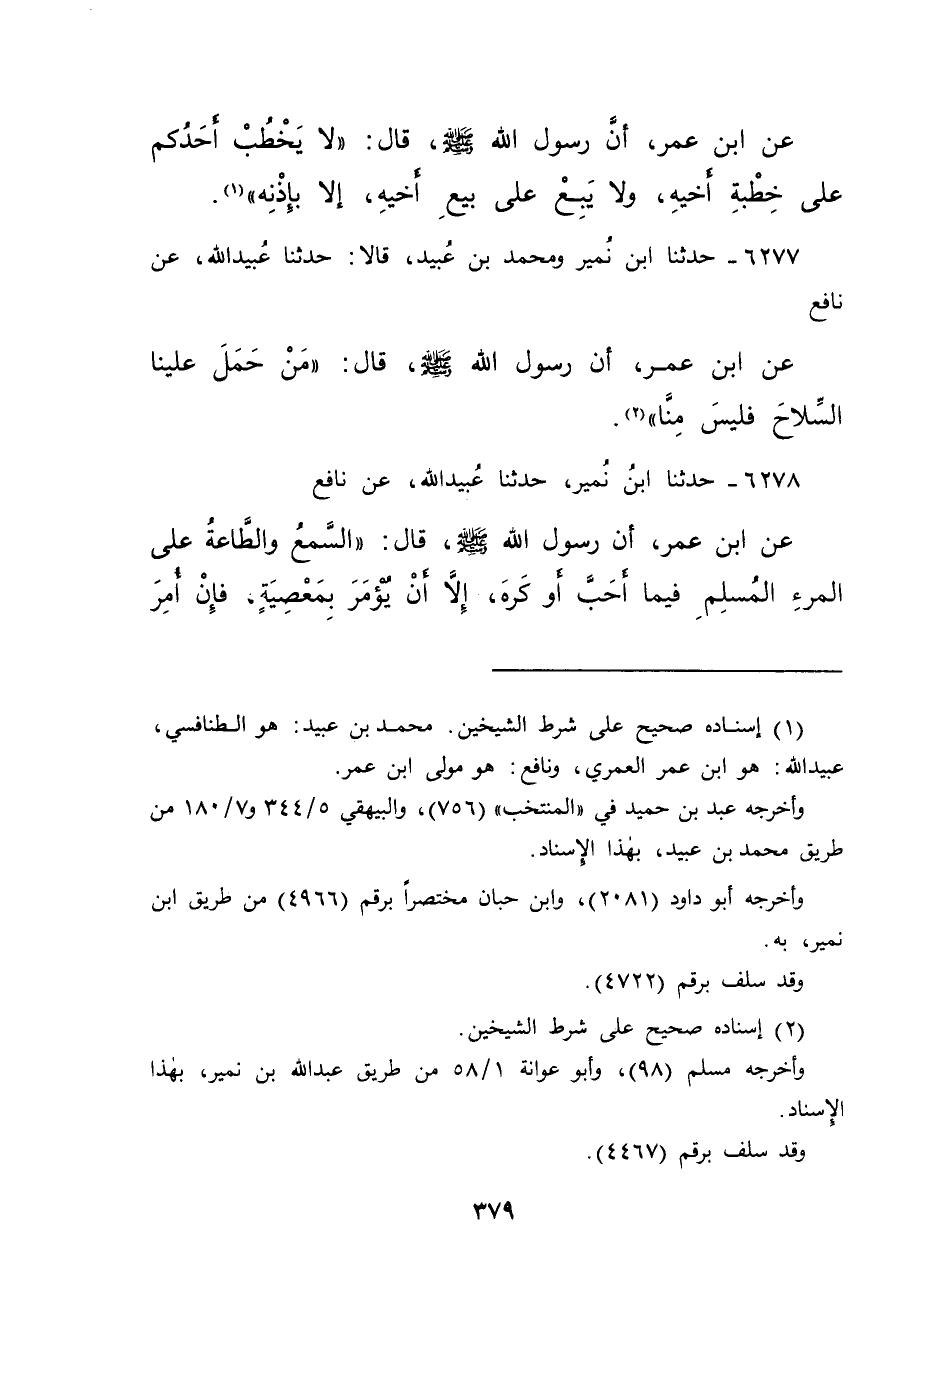 عن ابن عمر، أنَّ رسول الله ﷺ، قال: «لا يَخْطُبْ أَحَدُكم
على خِطْبةِ أَخيهِ، ولا يَبِعْ على بيعِ أَخيهِ، إلا بإِذْنِه»(١).
٦٢٧٧ ـ حدثنا ابن نُمير ومحمد بن عُبيد، قالا: حدثنا عُبيدالله، عن
نافع
عن ابن عمر، أن رسول الله ﷺ، قال: «مَنْ حَمَلَ علينا
السِّلاحَ فليسَ مِنَّا»(٢).
٦٢٧٨ ـ حدثنا ابنُ نُمير، حدثنا عُبيدالله، عن نافع
عن ابن عمر، أن رسول الله ﷺ، قال: «السَّمعُ والطَّاعةُ على
المرءِ المُسلِمِ فيما أَحَبَّ أَو كَرِهَ، إِلَّا أَنْ يُؤْمَرَ بِمَعْصِيَةٍ، فإِنْ أُمِرَ
(١) إسناده صحيح على شرط الشيخين. محمد بن عبيد: هو الطنافسي،
عبيدالله: هو ابن عمر العمري، ونافع: هو مولى ابن عمر.
وأخرجه عبد بن حميد في «المنتخب» (٧٥٦)، والبيهقي ٣٤٤/٥ و١٨٠/٧ من
طريق محمد بن عبيد، بهٰذا الإِسناد.
وأخرجه أبو داود (٢٠٨١)، وابن حبان مختصراً برقم (٤٩٦٦) من طريق ابن
نمير، به.
وقد سلف برقم (٤٧٢٢).
(٢) إسناده صحيح على شرط الشيخين.
وأخرجه مسلم (٩٨)، وأبو عوانة ٥٨/١ من طريق عبدالله بن نمير، بهٰذا
الإِسناد.
وقد سلف برقم (٤٤٦٧).
٣٧٩